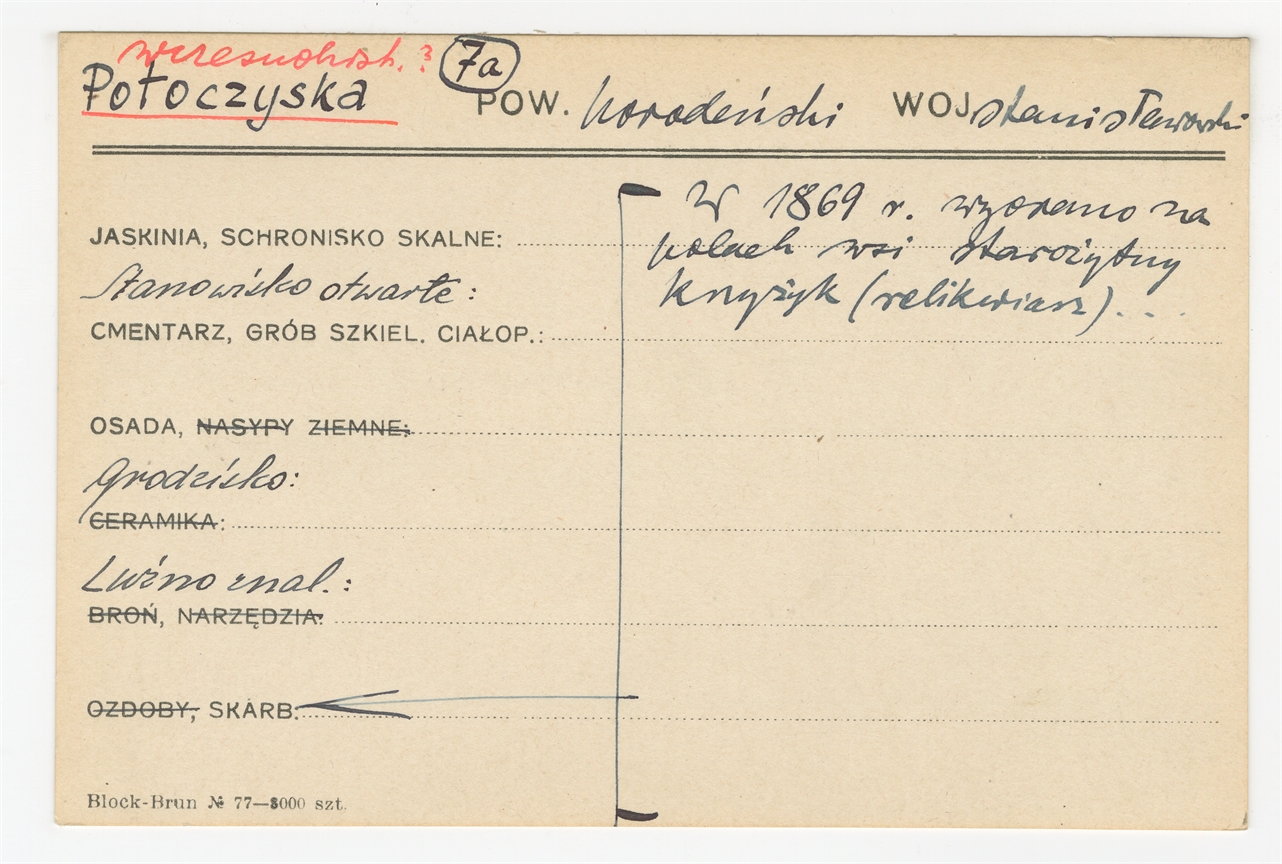 wczesnohist. ? 7a
Potoczyska POW. horodeński WOJ. stanisławowski
W 1869 r. wyorano na
JASKINIA, SCHRONISKO SKALNE: polach wsi starożytny
Stanowisko otwarte: krzyżyk (relikwiarz)....
CMENTARZ, GRÓB SZKIEL. CIAŁOP.:
OSADA, NASYPY ZIEMNE:
Grodzisko:
CERAMIKA:
Luźno znal.:
BROŃ, NARZĘDZIA:
OZDOBY, SKARB:
Block-Brun № 77—3000 szt.